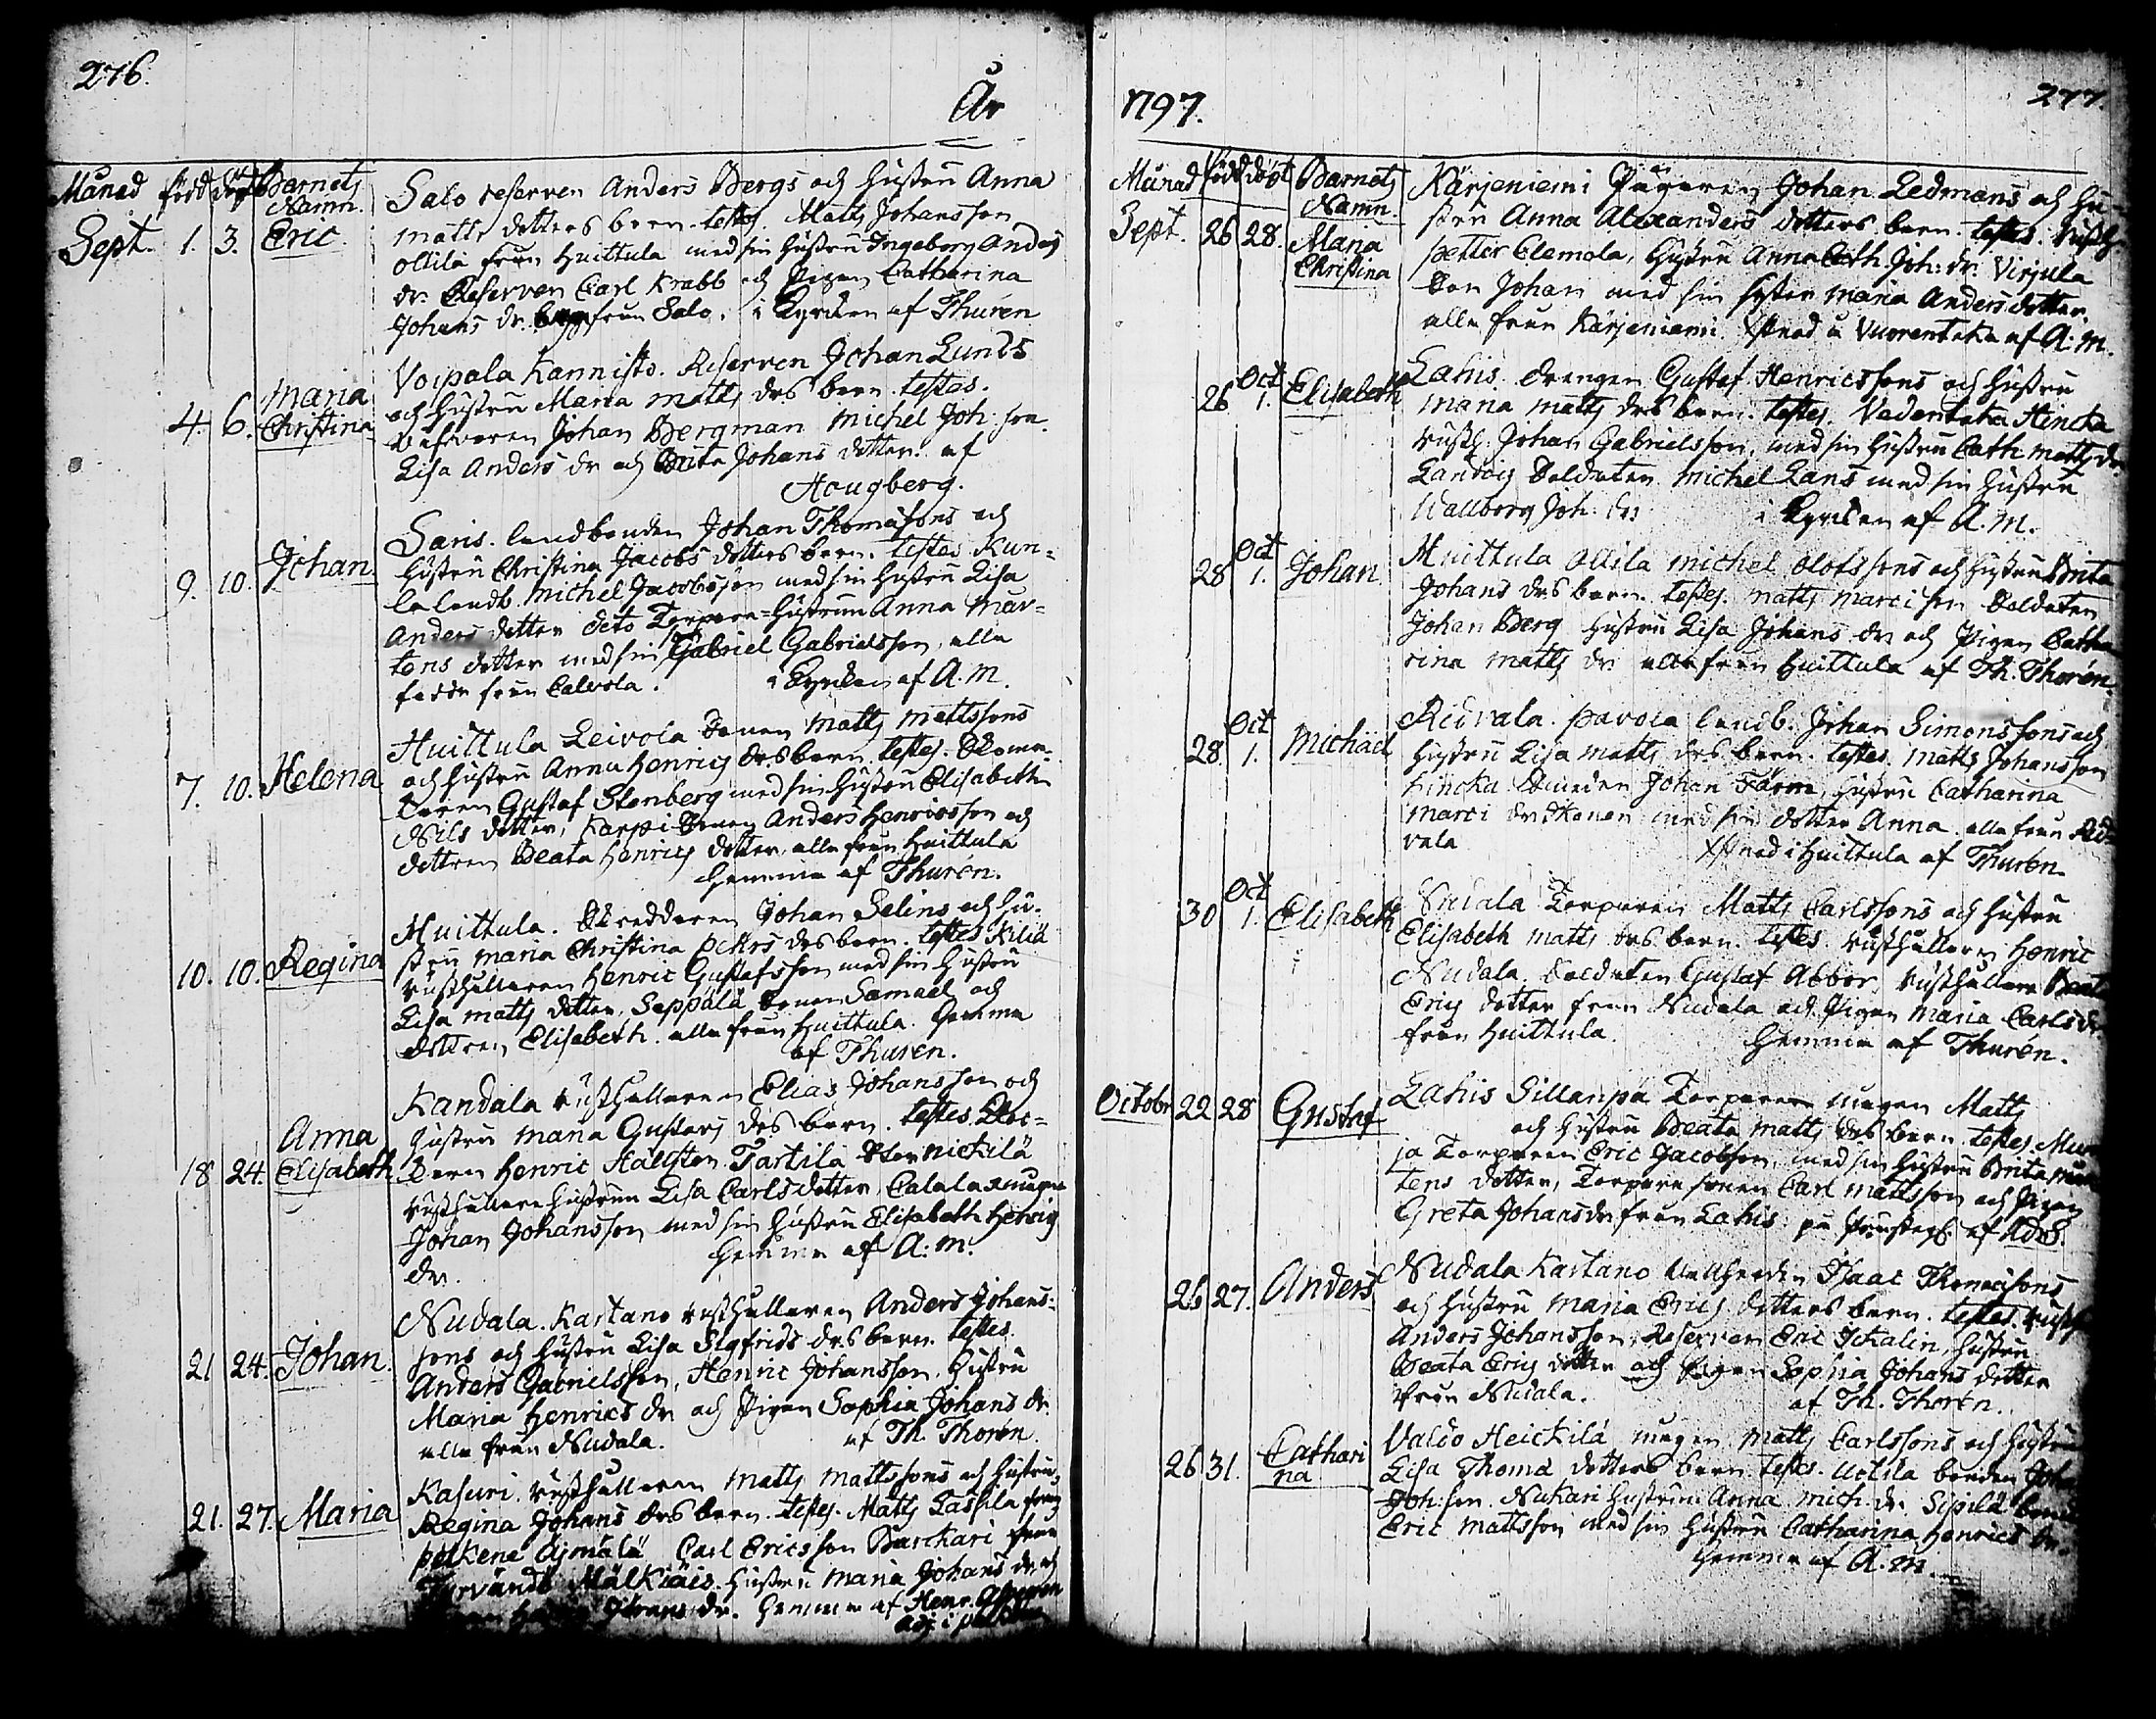 276.
År
Månad född döpt Barnets
Namn.
Sept. 1. 3. Eric
Salo reserven Anders Bergs och hustru Anna
Matts dotters barn. testes. Matts Johansson
Ollila från Huittula med sin hustru Ingeborg Anders
dr. Reserven Carl Krabb och Pigan Catharina
Johans dr. från Salo. i Kyrckan af Thurén
4. 6. Maria
Christina
Voipala Kannisto. Reserven Johan Lunds
och hustru Maria Matts drs barn. testes.
Johan Bergman Michel Joh: son
Lisa Anders dr och Brita Johans dotter. af
Hougberg.
9. 10. Johan
Saris. landbonden Johan Thomæsons och
hustru Christina Jacobs dotters barn. testes. Kun-
la landb. Michel Jacobsson med sin hustru Lisa
Anders dotter dito Torpare-hustrun Anna Mår-
tens dotter med sin Gabriel Gabrielsson, alla
från Calvola. i Kyrckan af A. M.
7. 10. Helena
Huittula Leivola Sonen Matts Mattssons
och hustru Anna Henrics drs barn. testes. Skoma-
karen Gustaf Stenberg med sin hustru Elisabeth
Nils dotter, Karpi Sonen Anders Henricsson och
dottren Beata Henrics dotter, alla från Huittula
hemma af Thurén.
10. 10. Regina
Huittula. Skreddaren Johan Selins och hu-
stru Maria Christina Pehrs drs barn. testes Kiliä
rusthållaren Henric Gustafsson med sin hustru
Lisa Matts dotter, Seppälä Sonen Samuel och
dottren Elisabeth. alla från Huittula. hemma
af Thuren.
18 24. Anna
Elisabeth
Kandala rusthållaren Elias Johansson och
hustru Maria Gustavs drs barn. testes.
Henric Hållsten Tartila Nickilä
rusthållare hustrun Lisa Carlsdotter, Calala mågen
Johan Johansson med sin hustru Elisabeth Henrics
dr. hemma af A: M.
21 24. Johan.
Nudala. Kartano rusthållaren Anders Johans-
sons och hustru Lisa Sigfrids drs barn. testes.
Anders Gabrielsson, Henric Johansson, hustru
Maria Henrics dr och Pigan Sophia Johans dr.
alla från Nudala. af Th. Thorén.
21. 27. Maria
Kasuri. rusthållaren Matts Mattssons och hustru
Regina Johans drs barn. testes. Matts Lassila från
Pälkene Äjmälä Carl Ericsson Barckari från
Tyrvändö Mälkiäis. hustru Maria Johans dr och
Johans dr. hemma af Henr.
Adj: i
1797.
277.
Månad född döpt Barnets
Namn.
Sept. 26 28. Maria
Christina
Kärjeniemi Johan Ledmans och hu-
stru Anna Alexanders dotters barn. testes. rusth.
Petter Elemola, hustru Anna Cath. Joh: dr. Virjula
Son Johan med sin syster Maria Andersdotter
alla från Kärjeniemi. Xstnad i Vuorentaka af A: M.
26 Oct
1. Elisabeth
Lahis. drengen Gustaf Henricssons och hustru
Maria Matts drs barn. testes. Vadentaka Hincka
rusth. Johan Gabrielsson, med sin hustru Cath Matts dr.
Soldaten Michel Lans med sin hustru
Wallborg Joh. dr i Kyrckan af A. M.
28 Oct
1. Johan.
Huittula Ollila Michel Olofssons och hustru Brita
Johans drs barn. testes. Matts Marcison Soldaten
Johan Berg hustru Lisa Johans dr och Pigan Catha
rina Matts dr alla från Huittula af Th. Thorén.
28. Oct
1. Michael
Ridvala. Pavola landb. Johan Simonssons och
hustru Lisa Matts drs barn. testes. Matts Johansson
Hincka Smeden Johan Färm, hustru Catharina
Marci dr med sin dotter Anna alla från Rid-
vala Xstnad i Huittula af Thurén.
30 Oct
1. Elisabeth
Nudala Torparen Matts Carlssons och hustru
Elisabeth Matts drs barn. testes. rusthållaren Henric
Nudala Soldaten Gustaf Abbor, rusthållare Beata
Erics dotter från Nudala och Pigan Maria Carls dr
från Huittula. hemma af Thurén.
Octobr 22 28 Gustaf
Lahis Sillanpä Torpare mågen Matts
och hustru Beata Matts drs barn. testes.
ja Torparen Eric Jacobsson, med sin hustru Brita Mår
tens dotter, Torpare sonen Carl Mattsson och Pigan
Greta Johansdr från Lahis. på af
26 27. Anders
Nudala Kartano Isaac Thomæsons
och hustru Maria Erics dotters barn. testes. rusth
Anders Johansson, Reserven Eric Ickalin, hustru
Beata Erics dotter och Pigan Sophia Johans dotter
från Nudala. af Th. Thorén.
26 31. Cathari
na
Valdo Heickilä mågen Matts Carlssons och hustru
Lisa Thomæ dotters barn. testes. Uotila bonden Joh
Joh: son. Nukari hustrun Anna Mich: dr. Sipilä bonden
Eric Mattsson med sin hustru Catharina Henrics dr.
hemma af A. M.